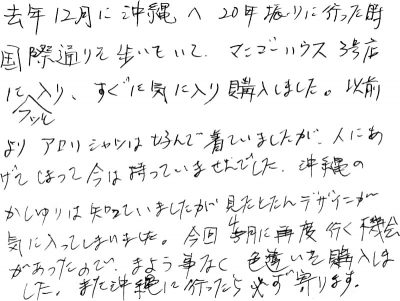 去年12月に沖縄へ20年振りに行った時
国際通りを歩いていて、マンゴーハウス3号店
にフラッと入り、すぐに気に入り購入しました。以前
よりアロハシャツは好んで着ていましたが、人にあ
げてしまって今は持っていませんでした。沖縄の
かりゆしは知っていましたが見たとたんデザインが
気に入ってしまいました。今回5月に再度行く機会
があったので、まよう事なく色違いを購入しま
した。また沖縄に行ったら必ず寄ります。